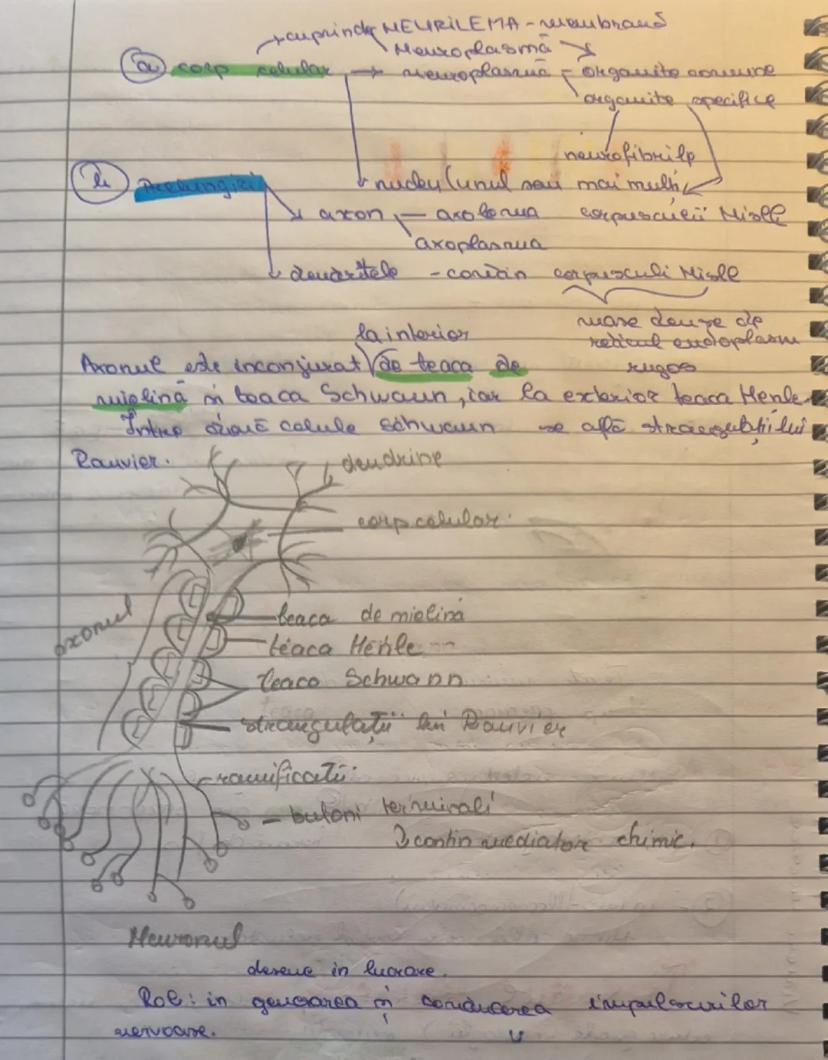 cuprinde NEURILEMA - membrană
Neuroplasmă
a corp celular → neuroplasmă - organite comune
organite specifice
neurofibrile
nucleu (unul sau mai mulți
b Prelungiri
axon - axolema corpusculii Nissl
axoplasma
dendritele - conțin corpusculi Nissl
mase dense de
la interior reticul endoplasm
Axonul este inconjurat de teaca de rugos
mielină și teaca Schwann, iar la exterior teaca Henle.
Între două celule Schwann se află strangulațiilui
Ranvier.
dendrine
corp celular
axonul
teaca de mielină
teaca Henle
teaca Schwann
strangulații lui Ranvier
ramificații
- butoni terminali
conțin mediator chimic.
Neuronul
desene in lucrare.
Rol: in generarea și conducerea impulsurilor
nervoase.